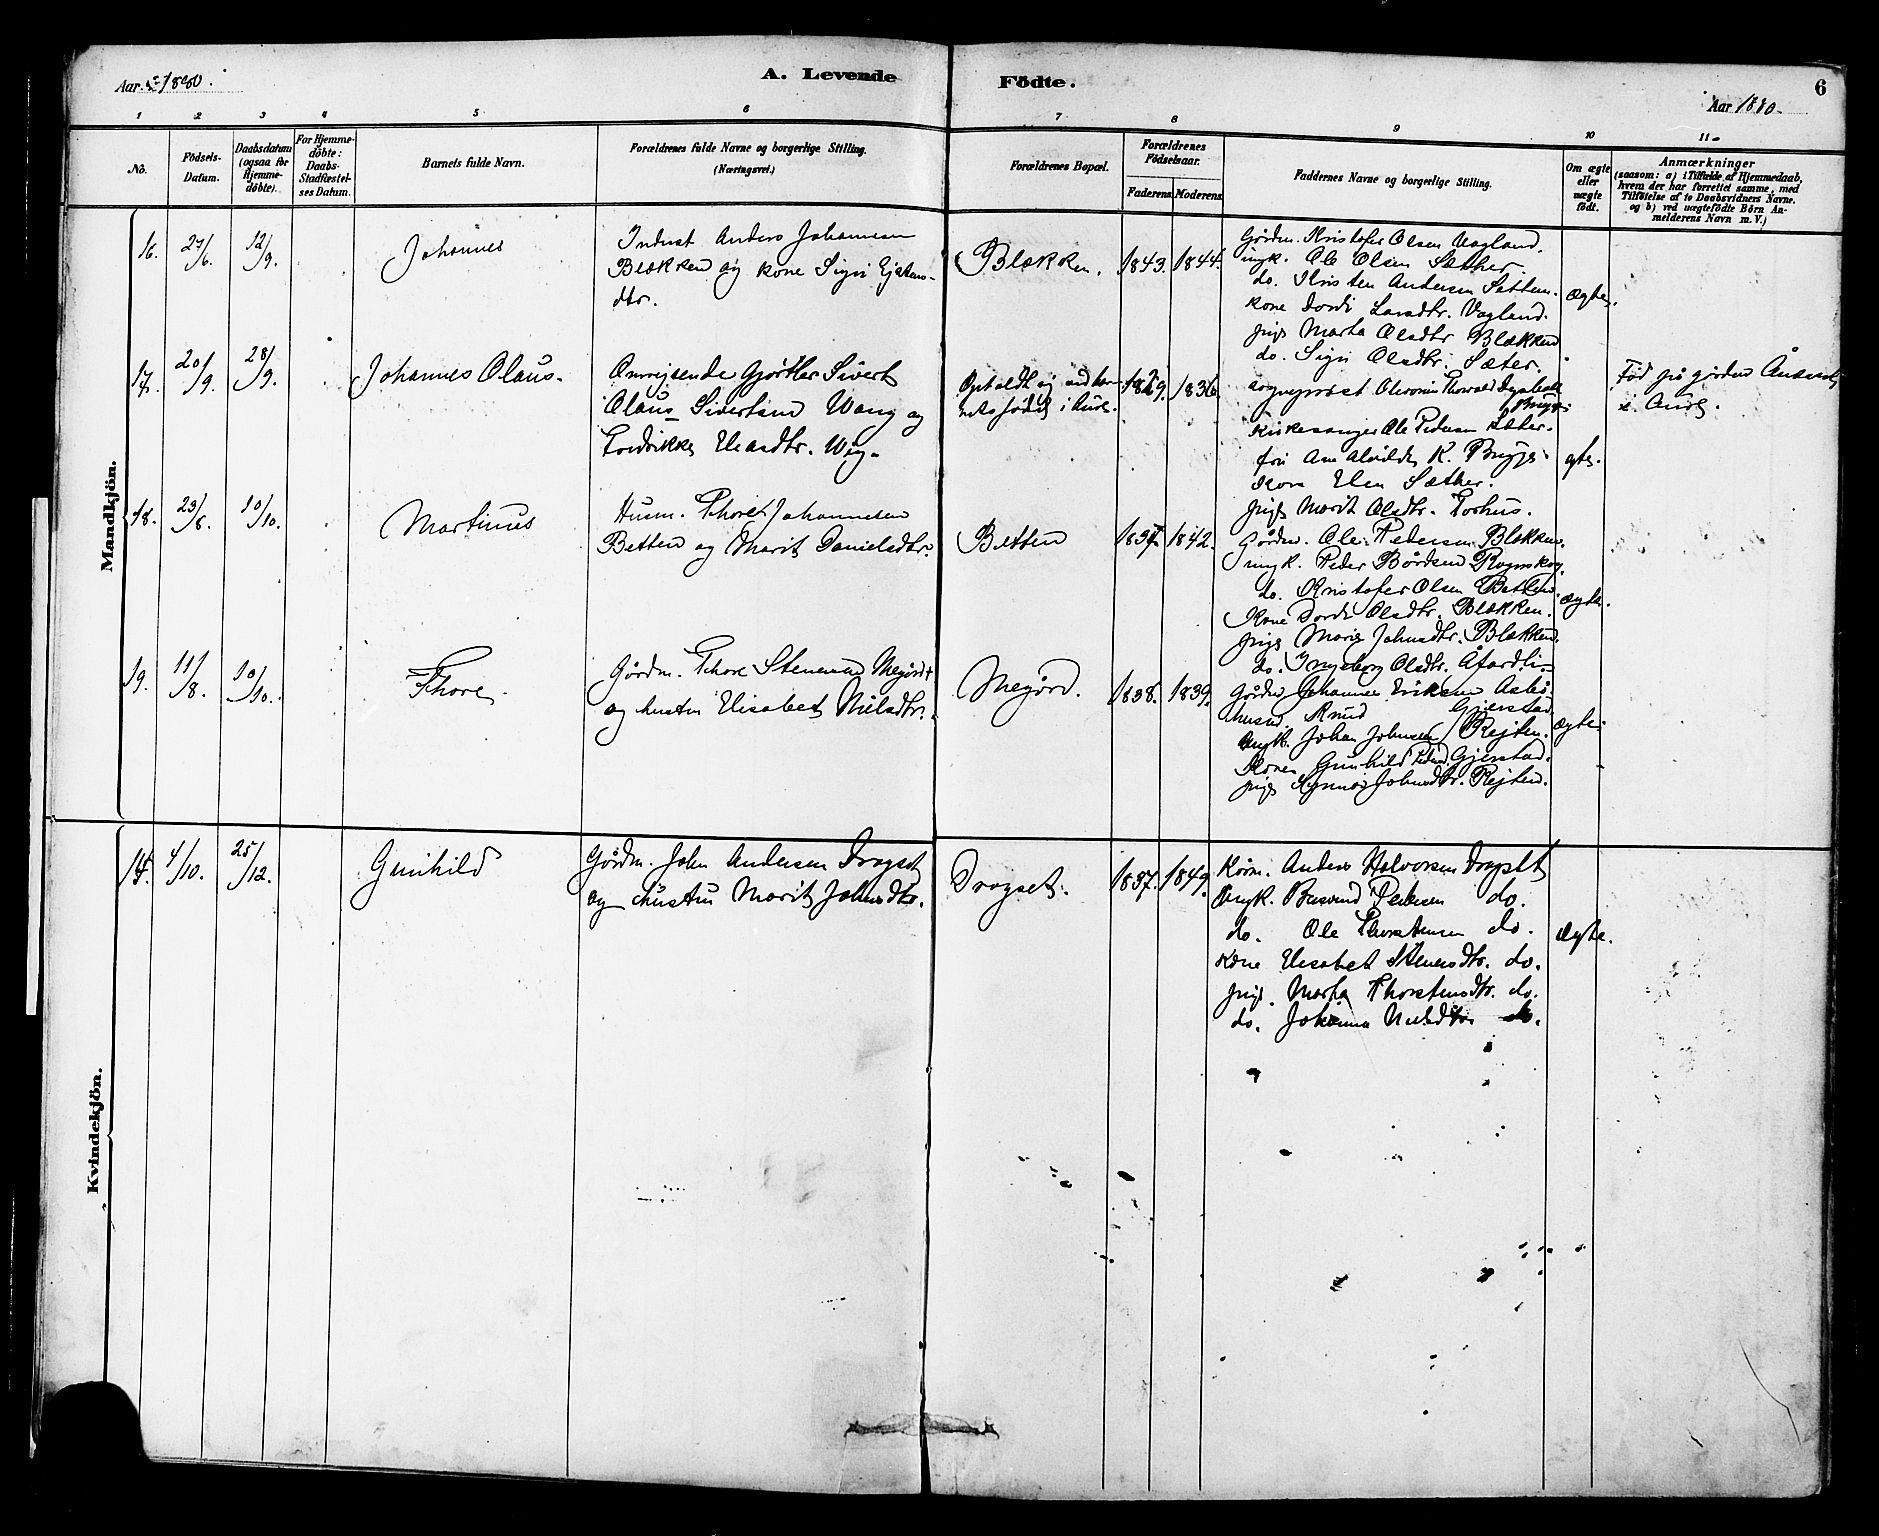 Aar 1880.
A. Levende Födte.
6
Aar 1880.
1 2 3 4 5 6 7 8 9 10 11
No.
Födsels-Datum.
Daabsdatum (ogsaa for Hjemme-döbte).
For Hjemme-döbte: Daabs-Stadfæstel-ses Datum.
Barnets fulde Navn.
Forældrenes fulde Navne og borgerlige Stilling.
(Næringsvei.)
Forældrenes Bopæl.
Forældrenes Födselsaar.
Faderens. Moderens.
Faddernes Navne og borgerlige Stilling.
Om ægte eller uægte födt.
Anmærkninger
(saasom: a) i Tilfælde af Hjemmedaab,
hvem der har forrettet samme, med
Tilföielse af to Daabsvidners Navne,
og b) ved uægtefödte Börn An-
melderens Navn m. V.)
Mandkjön.
16. 27/6. 12/9. Johannes
Inderst Anders Johannesen
Blækken og kone Sigri
dtr.
Blækken. 1843. 1844.
Gårdm. Kristofer Olsen Vagland.
ungk. Ole Olsen Sæther.
do. Kristen Andersen Settem.
kone Dordi Larsdtr. Vagland.
pige Marta Olsdtr Blækken
do. Sigri Olsdtr. Sæter.
ægte.
17. 20/9. 28/9. Johannes Olaus.
Omrejsende Gjørtler Sivert
Olaus Sivertsen Wang og
Fredrikke Eliasdtr. Wig.
Opholdt sig ved bar-
nets fødsel i Aure.
1829. 1836.
sogneprest Thorvald
Brügge
kirkesanger Ole Pedersen Sæter.
K. Brügge
kone Elen Sæther.
pige Marit Olsdtr. Torhus.
ægte.
Fød på gården
i Aure.
18. 23/8. 10/10. Martinus
Husm. Thore Johannesen
Betten og Marit Danielsdtr.
Betten 1837. 1842.
Gårdm. Ole Pedersen Blækken.
ungk. Peder Bårdsen Rognskog.
do. Kristofer Olsen Betten.
Kone Dordi Olsdtr. Blækken.
pige Marie Johnsdtr. Blækken.
do. Ingeborg Olsdtr.
ægte.
19. 11/8. 10/10. Thore.
Gårdm. Thore Stenersen Megård
og hustru Elisabet Nilsdtr.
Megård. 1838. 1839.
Gårdm. Johannes Eriksen
husm. Knud Gjerstad.
ungk. Johan Johnsen Rejten.
Kone Gunhild Gjerstad.
pige Johnsdtr. Rejten.
ægte.
Kvindekjön.
14. 4/10. 25/12. Gunhild
Gårdm. John Andersen Drogset
og hustru Marit Johnsdtr.
Drogset. 1837. 1849.
Kårm. Anders Halvorsen Drogset
Ungk. Pedersen do.
do. Ole Thorstensen do.
Kone Elisabet Stenersdtr. do.
pige. Marta Thorstensdtr. do.
do. Johanna Nilsdtr do.
ægte.